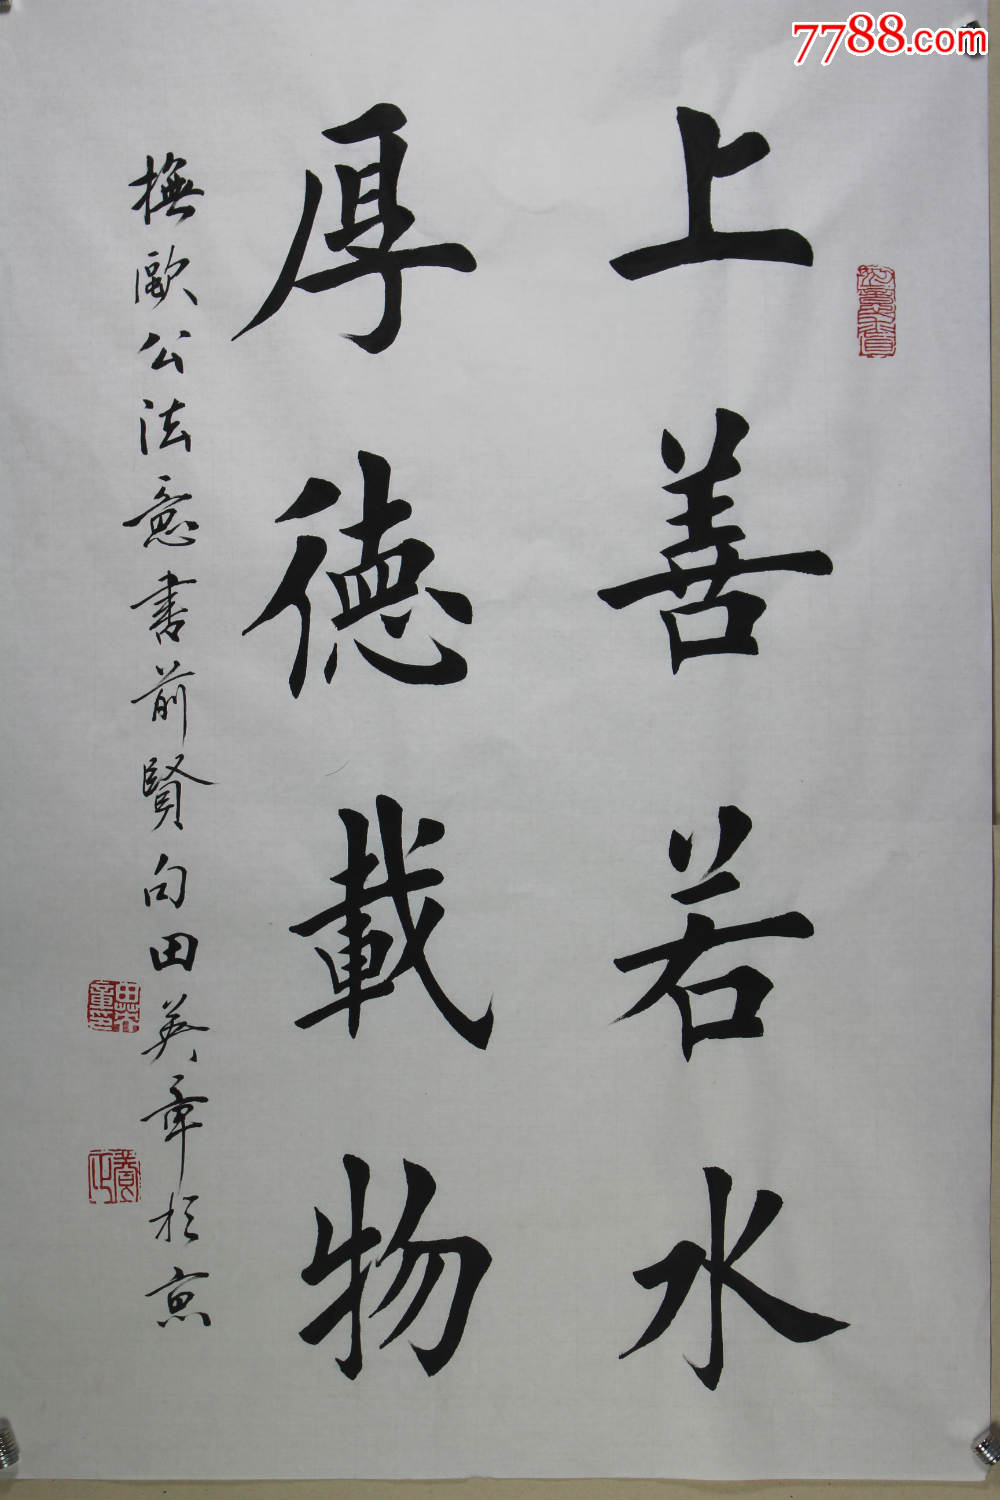 7788.com
上善若水
厚德載物
橅歐公法意書前賢句田英章於京